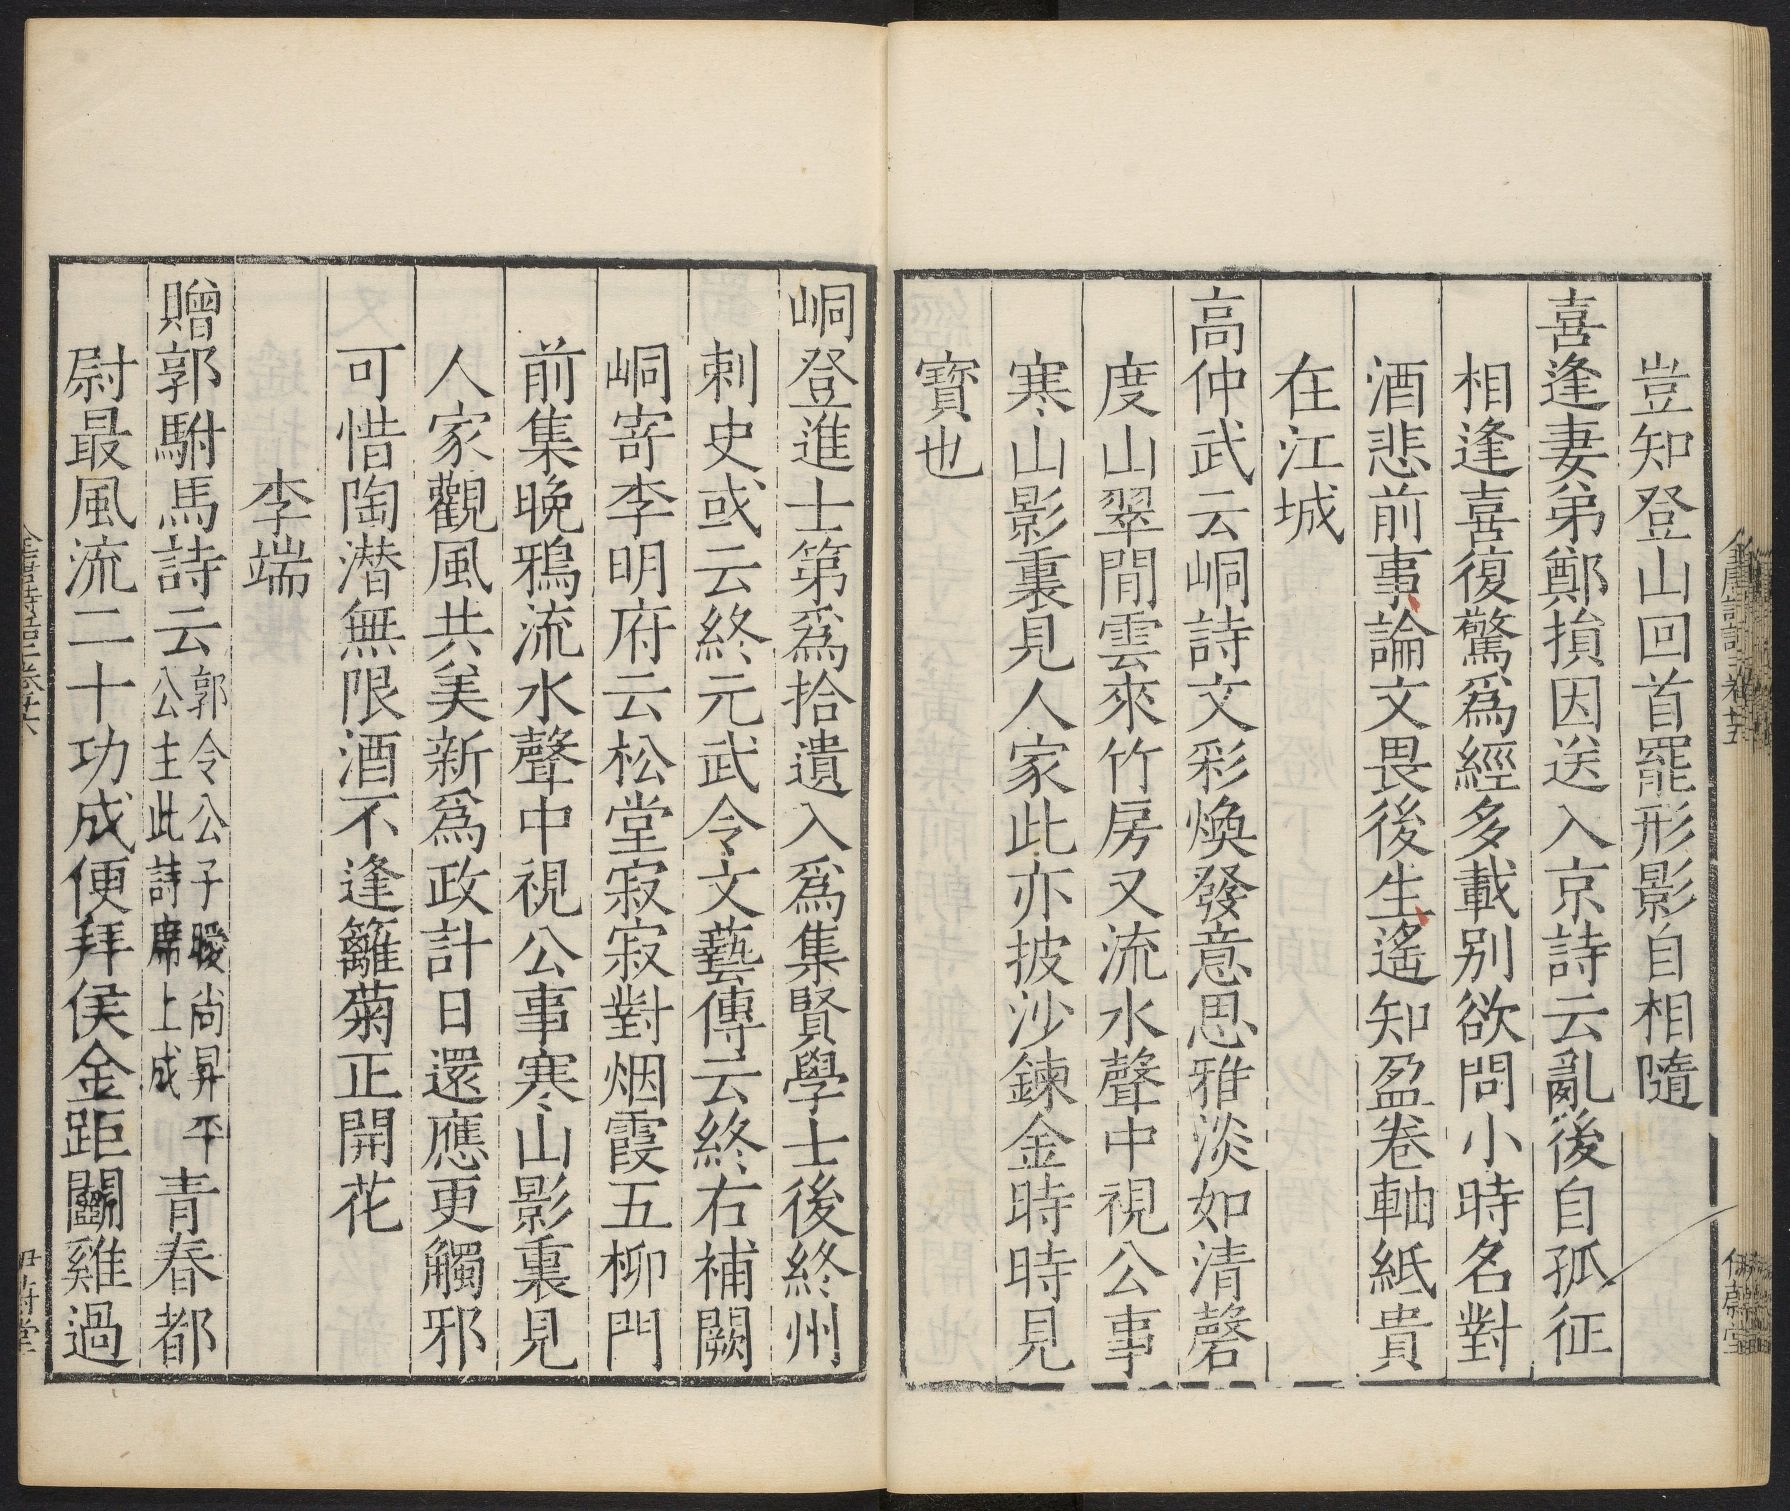 豈知登山回首罷形影自相隨
喜逢妻弟鄭損因送入京詩云亂後自孤征
相逢喜復驚爲經多載别欲問小時名對
酒悲前事論文畏後生遙知盈卷軸紙貴
在江城
高仲武云峒詩文彩煥發意思雅淡如清磬
度山翠閒雲來竹房又流水聲中視公事
寒山影裏見人家此亦披沙鍊金時時見
寶也
峒登進士第爲拾遺入爲集賢學士後終州
刺史或云終元武令文藝傳云終右補闕
峒寄李明府云松堂寂寂對烟霞五柳門
前集晚鴉流水聲中視公事寒山影裏見
人家觀風共美新爲政計日還應更觸邪
可惜陶潜無限酒不逢籬菊正開花
李端
贈郭駙馬詩云郭令公子曖尚昇平公主此詩席上成青春都
尉最風流二十功成便拜侯金距鬬雞過